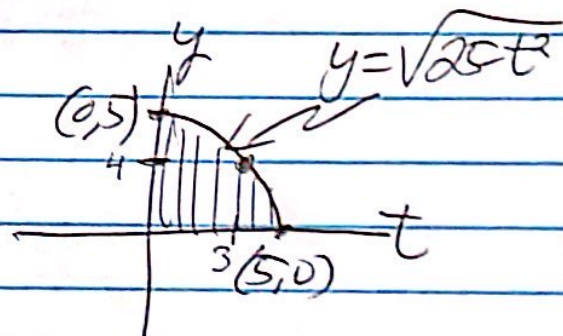 y
y=√25-t²
(0,5)
4
t
3 (5,0)